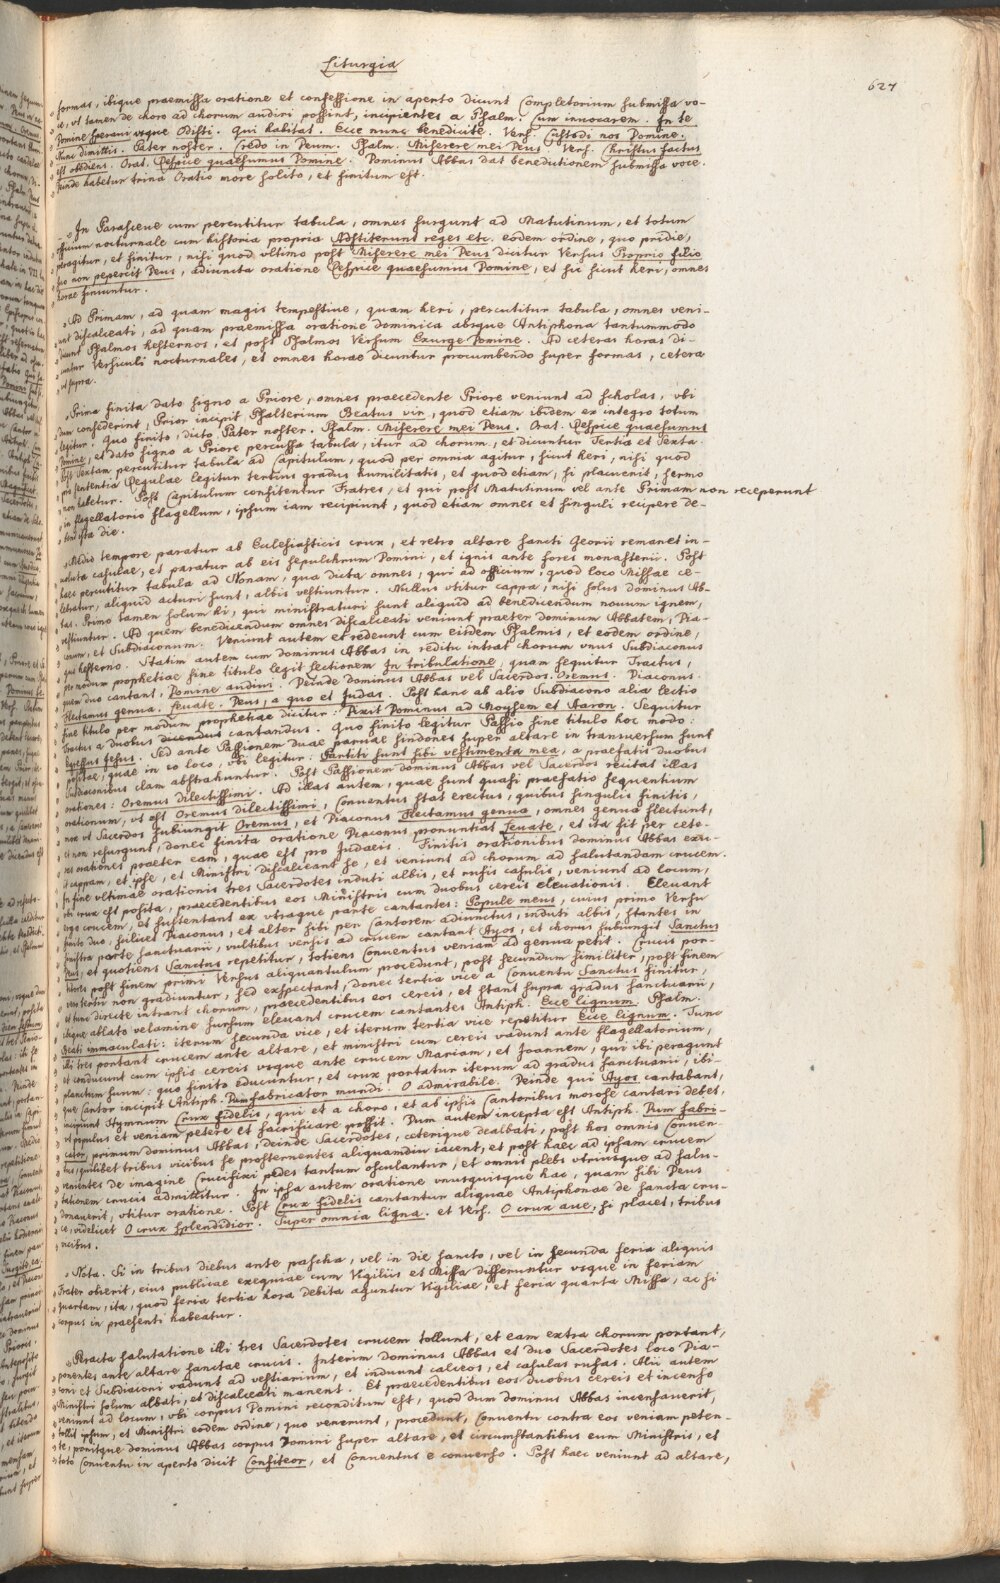 Liturgia
627
formas, ibique praemissa oratione et confessione in aperto dicunt Completorium submissa vo-
ce, ut tamen de choro ad chorum audiri possint, incipientes a Psalm. Cum invocarem. In te
Domine speravi usque Odisti. Qui habitat. Ecce nunc benedicite. Vers. Custodi nos Domine.
Nunc dimittis. Pater noster. Credo in Deum. Psalm. Miserere mei Deus. Vers. Christus factus
est obediens. Orat. Respice quaesumus Domine. Dominus Abbas dat benedictionem submissa voce.
Deinde habetur trina Oratio more solito, et finitum est.
In Parasceve cum percutitur tabula, omnes surgunt ad Matutinum, et totum
officium nocturnale cum historia propria Adstiterunt reges etc. eodem ordine, quo pridie,
peragitur, et finitur, nisi quod ultimo post Miserere mei Deus dicitur Versus Proprio filio
suo non pepercit Deus, adiuncta oratione Respice quaesumus Domine, et sic sicut heri, omnes
horae finiuntur.
Ad Primam, ad quam magis tempestive, quam heri, percutitur tabula, omnes veni-
unt discalceati, ad quam praemissa oratione dominica absque Antiphona tantummodo
dicunt Psalmos hesternos, et post Psalmos Versum Exurge Domine. Ad ceteras horas di-
cuntur Versiculi nocturnales, et omnes horae dicuntur procumbendo super formas, cetera
ut supra.
Prima finita dato signo a Priore, omnes praecedente Priore veniunt ad scholas, ubi
dum consederint, Prior incipit Psalterium Beatus vir, quod etiam ibidem ex integro totum
legitur. Quo finito, dicto Pater noster. Psalm. Miserere mei Deus. Orat. Respice quaesumus
Domine, et dato signo a Priore percussa tabula, itur ad chorum, et dicuntur Tertia et Sexta.
Post Sextam percutitur tabula ad Capitulum, quod per omnia agitur, sicut heri, nisi quod
pro sententia Regulae legitur tertius gradus humilitatis, et quod etiam, si placuerit, sermo
non habetur. Post Capitulum confitentur Fratres, et qui post Matutinum vel ante Primam non receperunt
in flagellatorio flagellum, ipsum iam recipiunt, quod etiam omnes et singuli recipere de-
bent ista die.
Medio tempore paratur ab Ecclesiasticis crux, et retro altare sancti Georii remanet in-
voluta casulae, et paratur ab eis sepulchrum Domini, et ignis ante fores monasterii. Post
haec percutitur tabula ad Nonam, qua dicta omnes, qui ad officium, quod loco Missae ce-
lebratur, aliquid acturi sunt, albis vestiuntur. Nullus utitur cappa, nisi solus dominus Ab-
bas. Primo tamen solum hi, qui ministraturi sunt aliquid ad benedicendum novum ignem,
vestiuntur. Ad quem benedicendum omnes discalceati veniunt praeter dominum Abbatem, Dia-
conum, et Subdiaconum. Veniunt autem et redeunt cum eisdem Psalmis, et eodem ordine,
quo hesterno. Statim autem cum dominus Abbas in reditu intrat chorum unus Subdiaconus
per modum prophetiae sine titulo legit lectionem In tribulatione, quam sequitur Tractus,
quem duo cantant, Domine audivi. Deinde dominus Abbas vel Sacerdos. Oremus. Diaconus.
Flectamus genua. Levate. Deus, a quo et Judas. Post hanc ab alio Subdiacono alia lectio
sine titulo per modum prophetiae dicitur: Dixit Dominus ad Moysem et Aaron. Sequitur
Tractus a duobus dicendus cantandus. Quo finito legitur Passio sine titulo hoc modo:
Egressus Jesus. Sed ante Passionem duae parvae sindones super altare in transversum sunt
positae, quae in eo loco, ubi legitur: Partiti sunt sibi vestimenta mea, a praefatis duobus
Subdiaconibus clam abstrahuntur. Post Passionem dominus Abbas vel Sacerdos recitat illas
orationes: Oremus dilectissimi. Ad illas autem, quae sunt quasi praefatio sequentium
orationum, ut est Oremus dilectissimi, Conventus stat erectus, quibus singulis finitis,
non ut Sacerdos subiungit Oremus, et Diaconus Flectamus genua, omnes genua flectunt,
et non resurgunt, donec finita oratione Diaconus pronuntiat Levate, et ita fit per cete-
ras orationes praeter eam, quae est pro Judaeis. Finitis orationibus dominus Abbas exu-
it cappam, et ipse, et Ministri discalceant se, et veniunt ad chorum ad salutandam crucem.
In fine ultimae orationis tres Sacerdotes induti albis, et rufis casulis, veniunt ad locum,
ubi crux est posita, praecedentibus eos Ministris cum duobus cereis elevationis. Elevant
ergo crucem, et sustentant ex utraque parte cantantes: Popule meus, cuius primo Versu
finito duo, scilicet Diaconus, et alter sibi per Cantorem adiunctus, induti albis, stantes in
sinistra parte sanctuarii, vultibus versis ad crucem cantant Ayos, et chorus subiungit Sanctus
Deus, et quotiens Sanctus repetitur, totiens Conventus veniam ad genua petit. Crucis por-
titores post finem primi Versus aliquantulum procedunt, post secundum similiter, post finem
vero tertii non gradiuntur, sed exspectant, donec tertia vice a Conventu Sanctus finitur,
et tunc directe intrant chorum, praecedentibus eos cereis, et stant supra gradus sanctuarii,
ibique ablato velamine sursum elevant crucem cantantes Antiph. Ecce lignum. Psalm.
Beati immaculati: iterum secunda vice, et iterum tertia vice repetitur Ecce lignum. Tunc
illi tres portant crucem ante altare, et ministri cum cereis vadunt ante flagellatorium,
et conducunt cum ipsis cereis usque ante crucem Mariam, et Joannem, qui ibi peragunt
planctum suum: quo finito educuntur, et crux portatur iterum ad gradus sanctuarii, ibi-
que Cantor incipit Antiph. Dum fabricator mundi. O admirabile. Deinde qui Ayos cantabant,
incipiunt Hymnum Crux fidelis, qui et a choro, et ab ipsis Cantoribus morose cantari debet,
ut populus et veniam petere et sacrificare possit. Dum autem incepta est Antiph. Dum fabri-
cator, primum dominus Abbas, deinde Sacerdotes, ceterique dealbati, post hos omnis Conven-
tus, quilibet tribus vicibus se prosternentes aliquamdiu iacent, et post haec ad ipsam crucem
venientes de imagine Crucifixi pedes tantum osculantur, et omnis plebs utriusque ad salu-
tationem crucis admittitur. In ipsa autem oratione unusquisque hac, quam sibi Deus
donaverit, utitur oratione. Post Crux fidelis cantantur aliquae Antiphonae de sancta cru-
ce, videlicet O crux splendidior. Super omnia ligna. et Vers. O crux ave, si placet, tribus
vicibus.
Nota. Si in tribus diebus ante pascha, vel in die sancto, vel in secunda feria aliquis
Frater obierit, eius publicae exequiae cum Vigiliis et Missa differuntur usque in feriam
quartam, ita, quod feria tertia hora debita aguntur Vigiliae, et feria quarta Missa, ac si
corpus in praesenti habeatur.
Peracta salutatione illi tres Sacerdotes crucem tollunt, et eam extra chorum portant,
ponentes ante altare sanctae crucis. Interim dominus Abbas et duo Sacerdotes loco Dia-
coni et Subdiaconi vadunt ad vestiarium, et induunt calceos, et casulas rufas. Alii autem
Ministri solum albati, et discalceati manent. Et praecedentibus eos duobus cereis et incenso
veniunt ad locum, ubi corpus Domini reconditum est, quod dum dominus Abbas incensaverit,
tollit ipsum, et Ministri eodem ordine, quo venerunt, procedunt, Conventu contra eos veniam peten-
te, ponitque dominus Abbas corpus Domini super altare, et circumstantibus eum Ministris, et
toto Conventu in aperto dicit Confiteor, et Conventus e converso. Post haec veniunt ad altare,